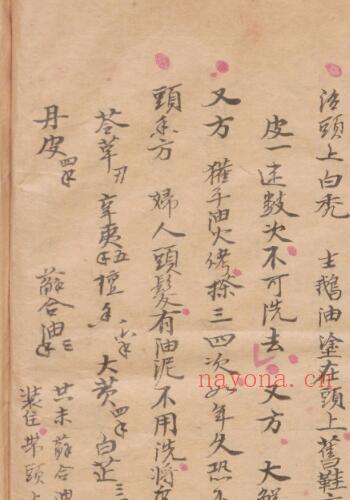 治頭上白禿 士鵝油塗在頭上舊鞋
皮一連数次不可洗去 又方 大
又方 獾子油火烤搽三四次如年久恐
頭香方 婦人頭髮有油泥不用洗將
苓草 辛夷 檀香 大黄 白芷
丹皮 蘇合油
共末蘇合油
装住帶頭上
nayona.cn